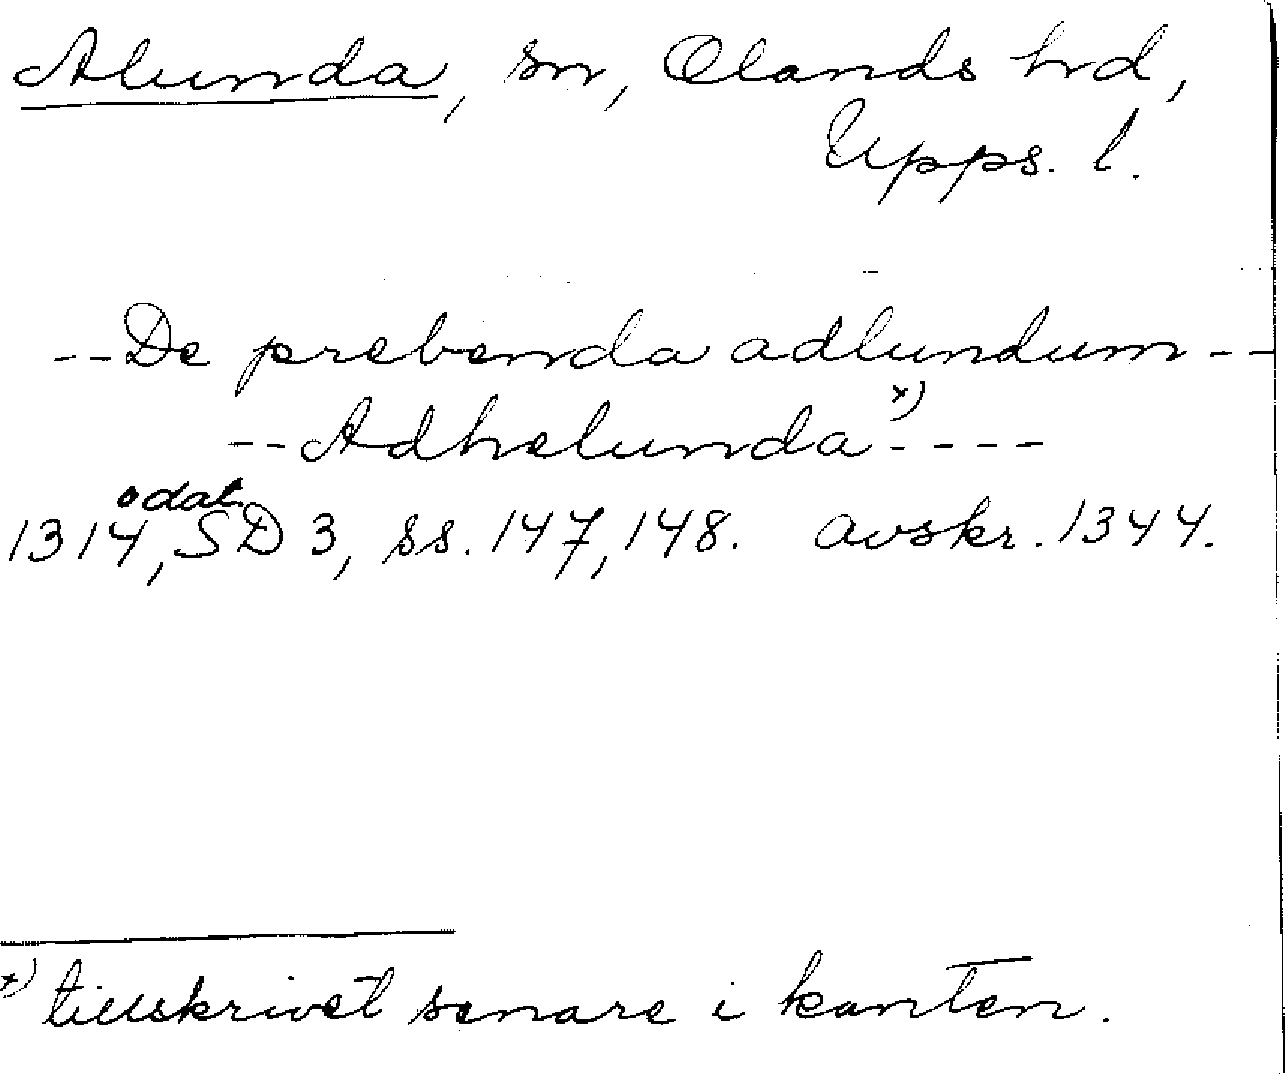 Alunda, sn, Olands hd,
Upps. l.
--De prebenda adlundum--
--Adhelunda x)----
odat.
1314, SD 3, ss. 147, 148. avskr. 1344.
x) tillskrivet senare i kanten.